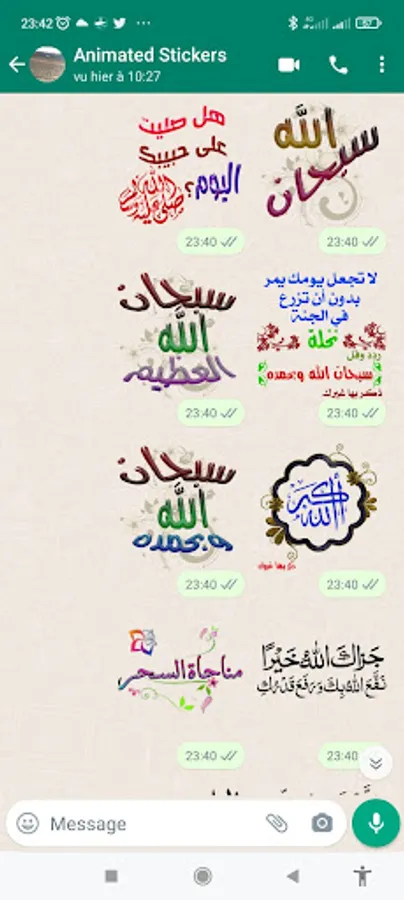 23:42
Animated Stickers
vu hier à 10:27
هل صليت
على حبيبك
اليوم؟
صلى الله عليه وسلم
23:40
سبحان
الله
23:40
سبحان
الله
العظيم
23:40
لا تجعل يومك يمر
بدون أن تزرع
في الجنة
نخلة
ردد وقل
سبحان الله وبحمده
ذكر بها غيرك
23:40
سبحان
الله
وبحمده
23:40
الله أكبر
ذكر بها غيرك
23:40
مناجاة السحر
23:40
جزاك الله خيرًا
نفع الله بك ورفع قدرك
23:40
Message